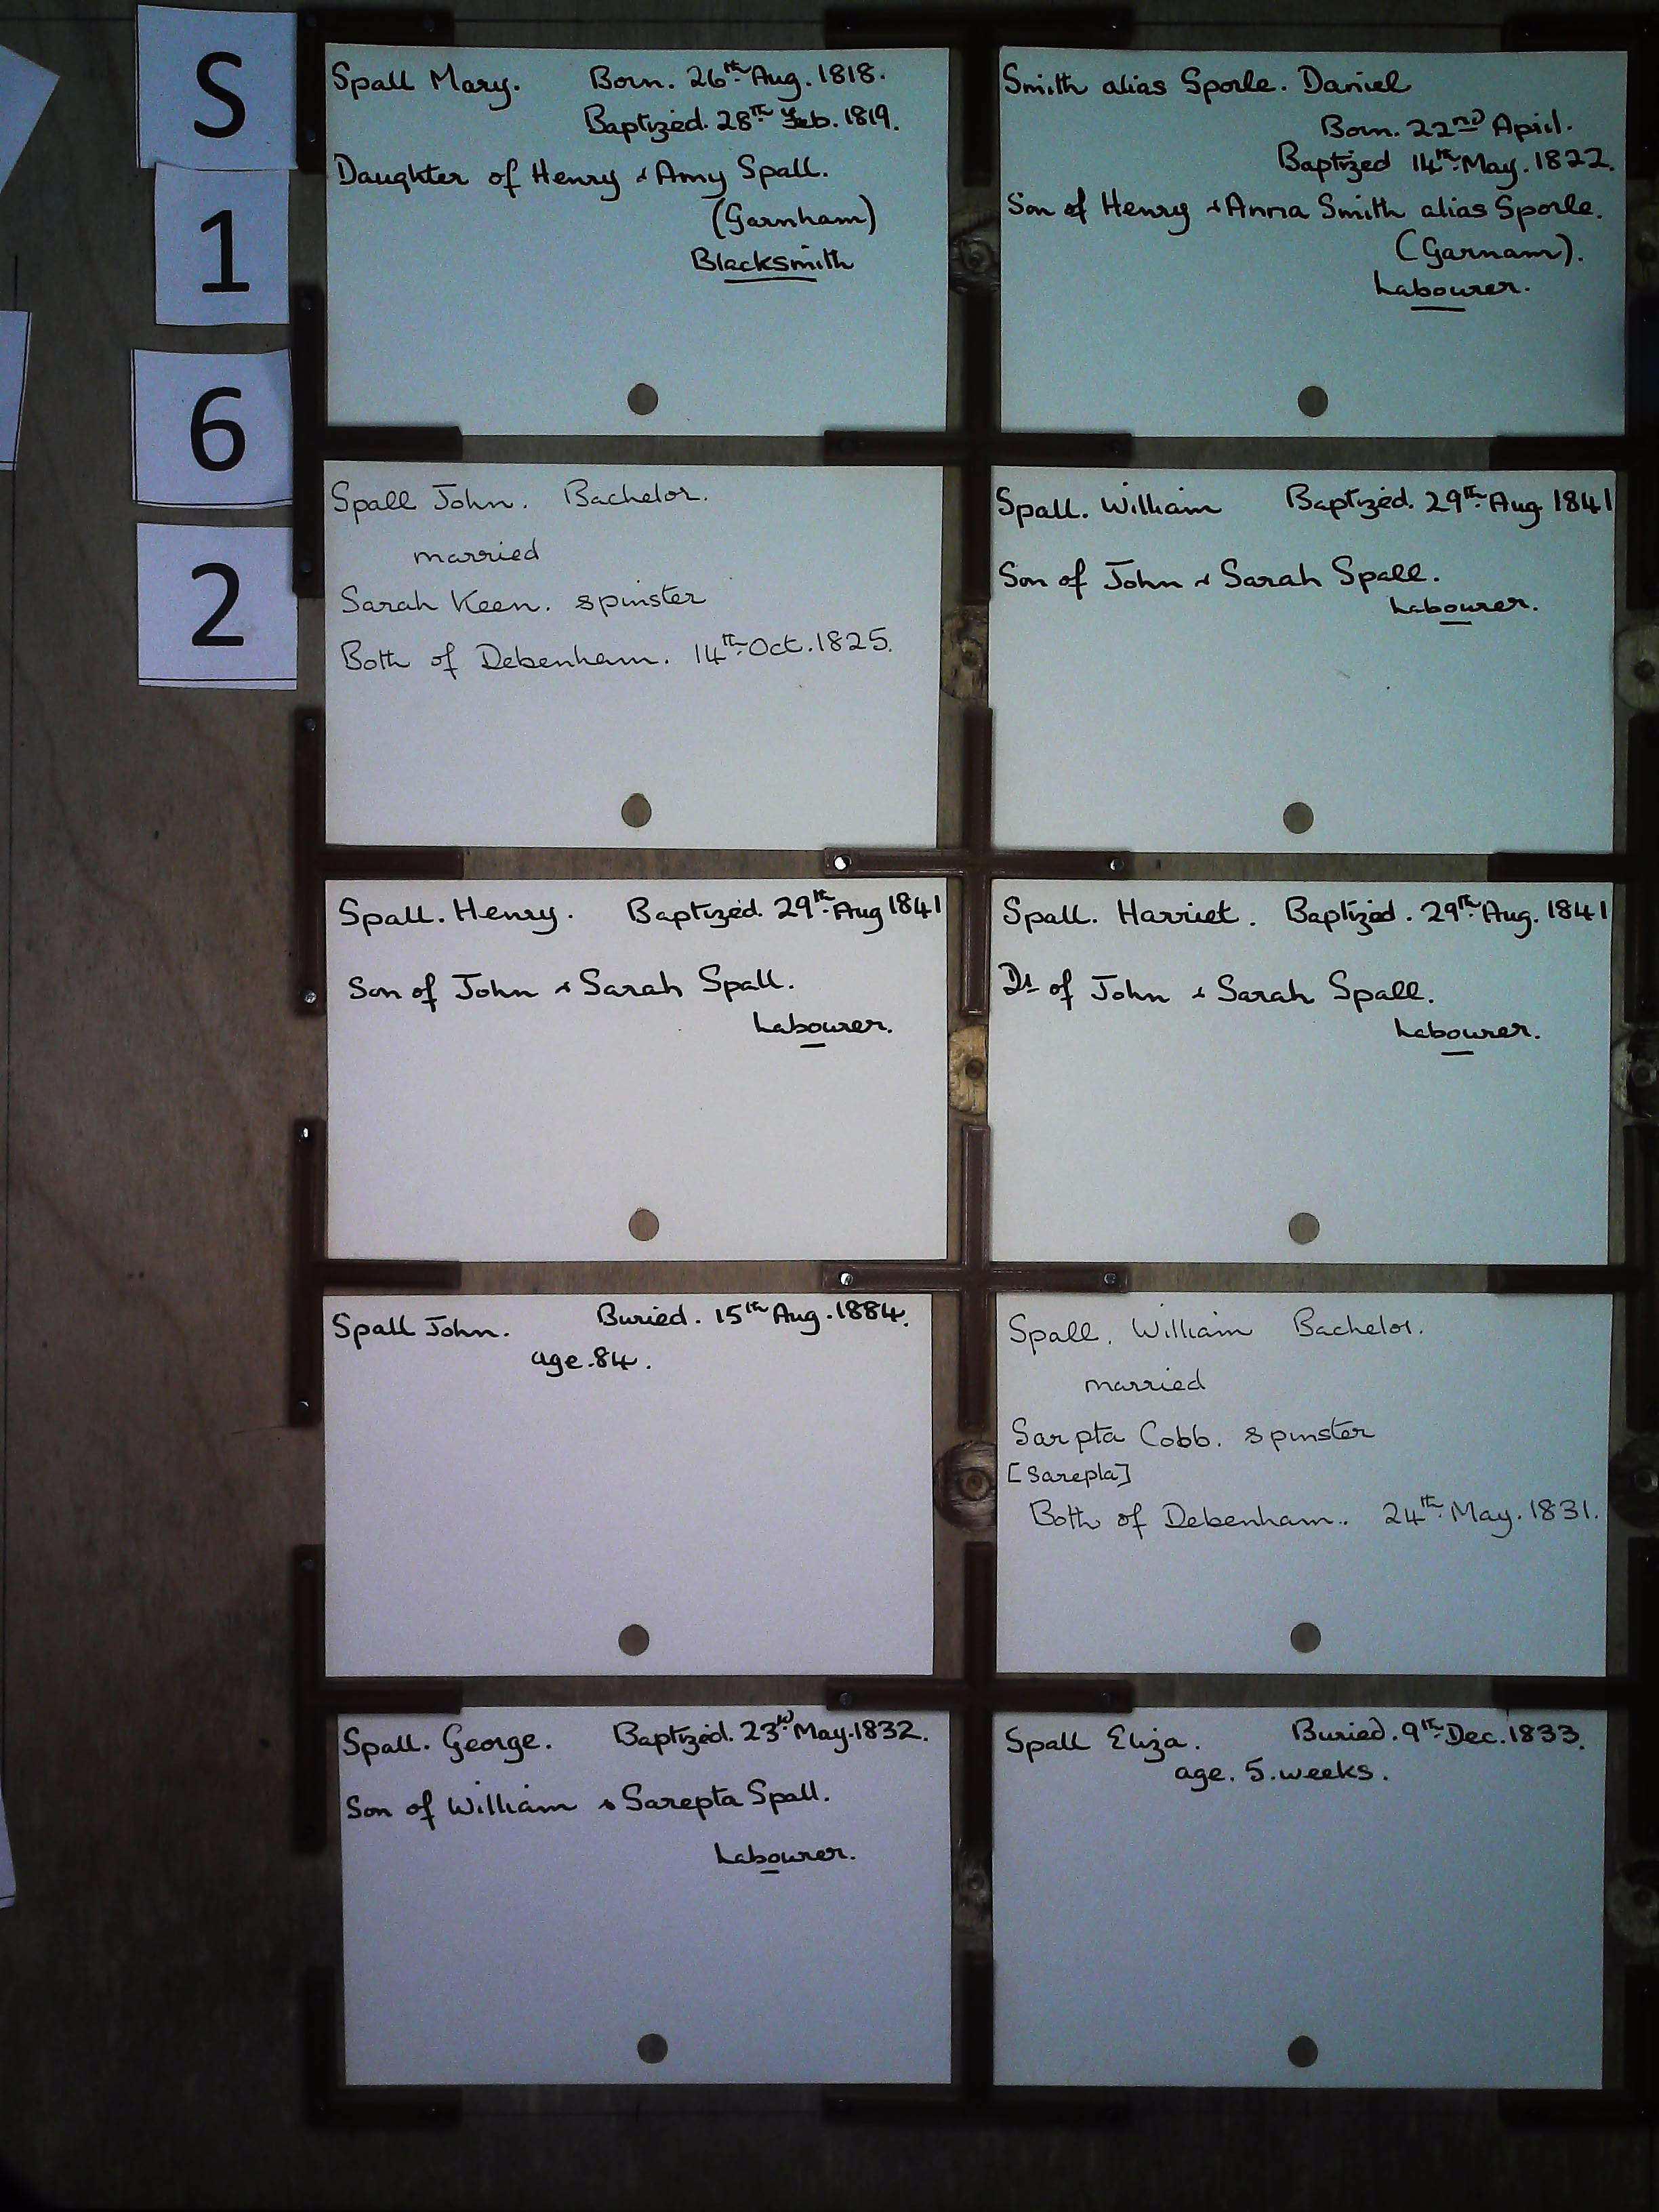 S
1
6
2
Spall Mary. Born. 26th Aug. 1818.
Baptized. 28TH Feb. 1819.
Daughter of Henry & Amy Spall.
(Garnham)
Blacksmith
Smith alias Sporle. Daniel
Born. 22nd April.
Baptized 14th May. 1822.
Son of Henry & Anna Smith alias Sporle.
(Garnam).
Labourer.
Spall John. Bachelor.
married
Sarah Keen. spinster
Both of Debenham. 14th Oct. 1825.
Spall. William Baptized. 29th Aug 1841
Son of John & Sarah Spall.
Labourer.
Spall. Henry. Baptized. 29th Aug 1841
Son of John & Sarah Spall.
Labourer.
Spall. Harriet. Baptized. 29th Aug. 1841
Dr of John & Sarah Spall.
Labourer.
Spall John. Buried. 15th Aug. 1884.
age. 84.
Spall. William Bachelor.
married
Sarpta Cobb. spinster
[Sarepla]
Both of Debenham.. 24th May. 1831.
Spall. George. Baptized. 23rd May. 1832.
Son of William & Sarepta Spall.
Labourer.
Spall Eliza. Buried. 9th Dec. 1833.
age. 5. weeks.